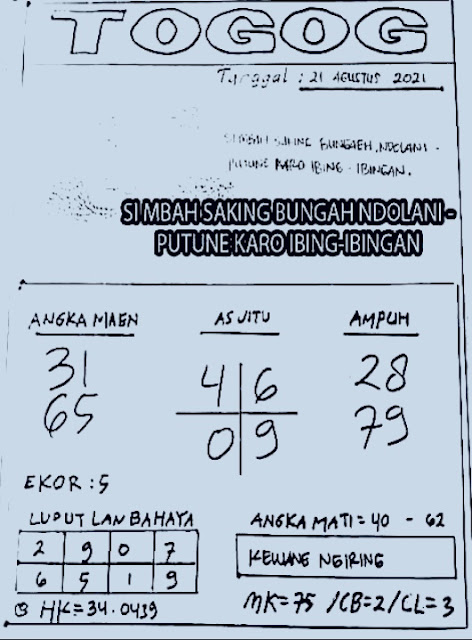 TOGOG
Tanggal : 21 AGUSTUS 2021
SI MBAH SAKING BUNGAEH NDOLANI -
PUTUNE KARO IBING - IBINGAN.
SI MBAH SAKING BUNGAH NDOLANI -
PUTUNE KARO IBING-IBINGAN
ANGKA MAEN AS JITU AMPUH
31 4 6 28
65 0 9 79
EKOR : 5
LUPUT LAN BAHAYA ANGKA MATI = 40 - 62
2 9 0 7
6 5 1 9
KEWANE NGIRING
HK = 34 . 0439 MK = 75 / CB = 2 / CL = 3